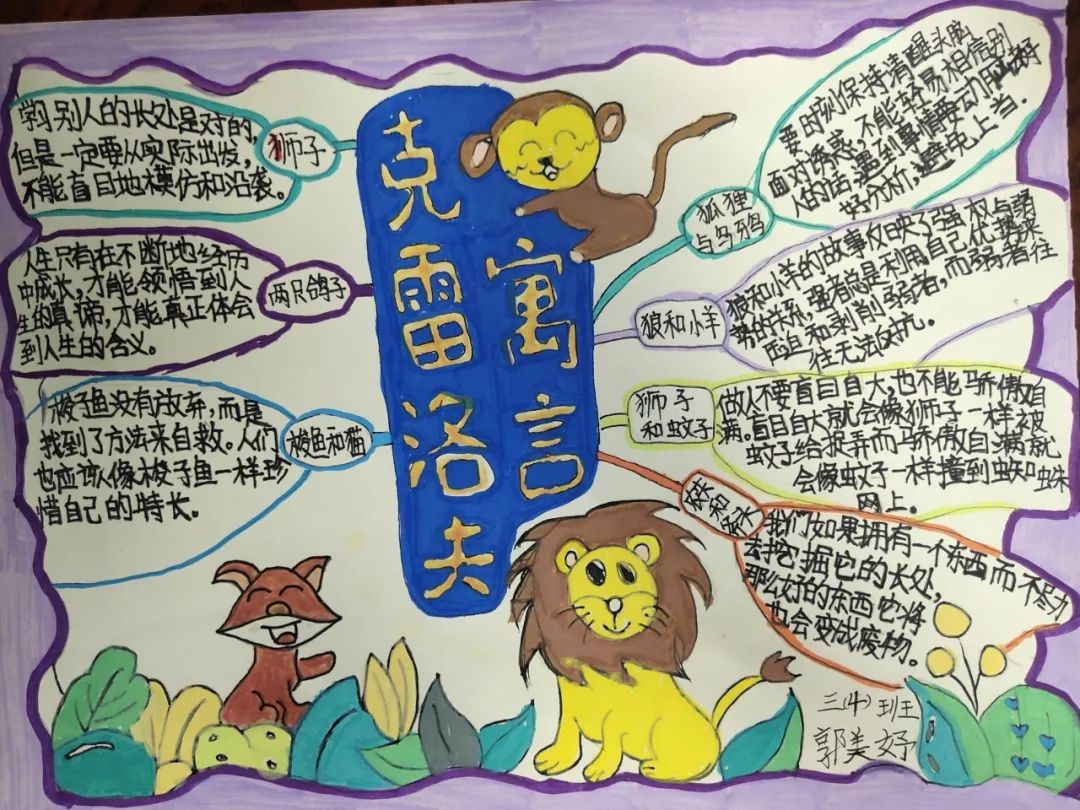 克雷洛夫
寓言
狮子
学习别人的长处是对的,
但是一定要从实际出发,
不能盲目地模仿和沿袭。
两只鸽子
人生只有在不断地经历
中成长,才能领悟到人
生的真谛,才能真正体会
到人生的含义。
梭鱼和猫
梭子鱼没有放弃,而是
找到了方法来自救。人们
也应该像梭子鱼一样珍
惜自己的特长。
狐狸
与乌鸦
要时刻保持清醒头脑,
面对诱惑,不能轻易相信别
人的话,遇到事情要动脑筋好
好分析,避免上当。
狼和小羊
狼和小羊的故事反映了强权与弱
势的关系,强者总是利用自己优势来
压迫和剥削弱者,而弱者往
往无法反抗。
狮子
和蚊子
做人不要盲目自大,也不能骄傲自
满。盲目自大就会像狮子一样被
蚊子给捉弄而骄傲自满就
会像蚊子一样撞到蜘蛛
网上。
我们如果拥有一个东西而不尽力
去挖掘它的长处,
那么好的东西它将
也会变成废物。
三(4)班
郭美妤